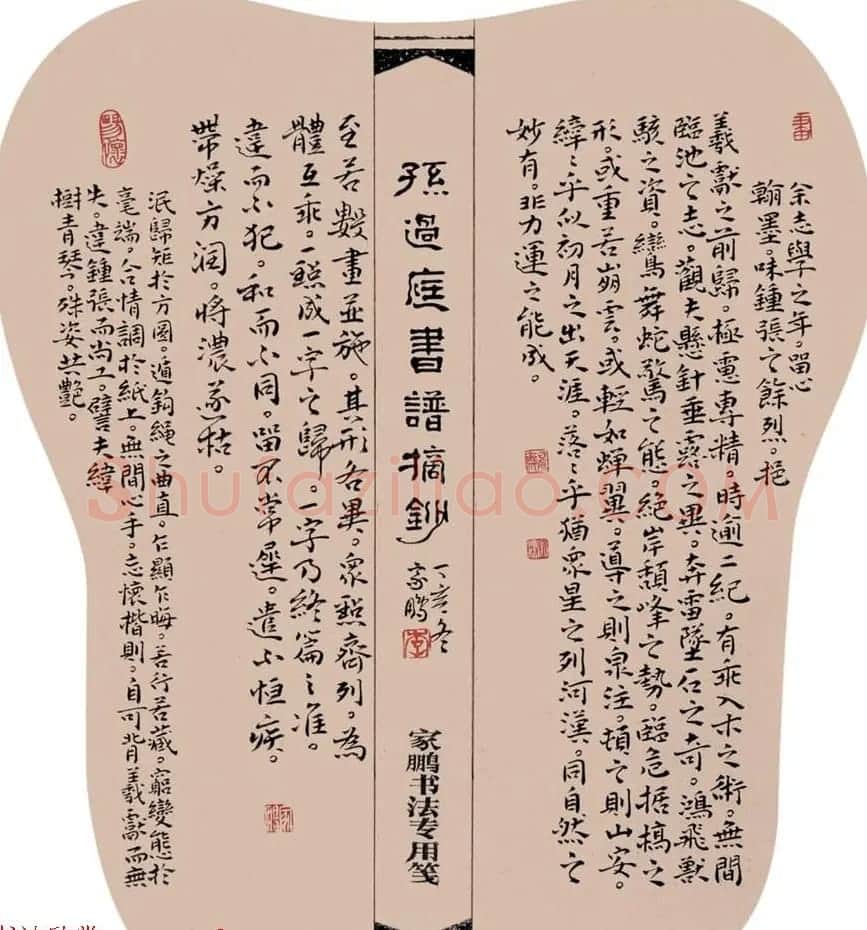 余志學之年。留心
翰墨。味鍾張之餘烈。挹
羲獻之前歸。極慮專精。時逾二紀。有乖入木之術。無間
臨池之志。觀夫懸針垂露之異。奔雷墜石之奇。鴻飛獸
駭之資。鸞舞蛇驚之態。絕岸頹峰之勢。臨危据槁之
形。或重若崩雲。或輕如蟬翼。導之則泉注。頓之則山安。
纖〻乎似初月之出天涯。落〻乎猶眾星之列河漢。同自然之
妙有。非力運之能成。
孫過庭書譜摘鈔
丁亥冬
家鵬
家鵬书法专用笺
至若數畫並施。其形各異。眾點齊列。為
體互乖。一點成一字之歸。一字乃終篇之准。
違而不犯。和而不同。留不常遲。遣不恒疾。
帶燥方潤。將濃遂枯。
泯歸矩於方圓。遁鉤繩之曲直。乍顯乍晦。若行若藏。窮變態於
毫端。合情調於紙上。無間心手。忘懷楷則。自可背羲獻而無
失。違鍾張而尚工。譬夫緯
樹青琴。殊姿共艷。
shufazidao.com